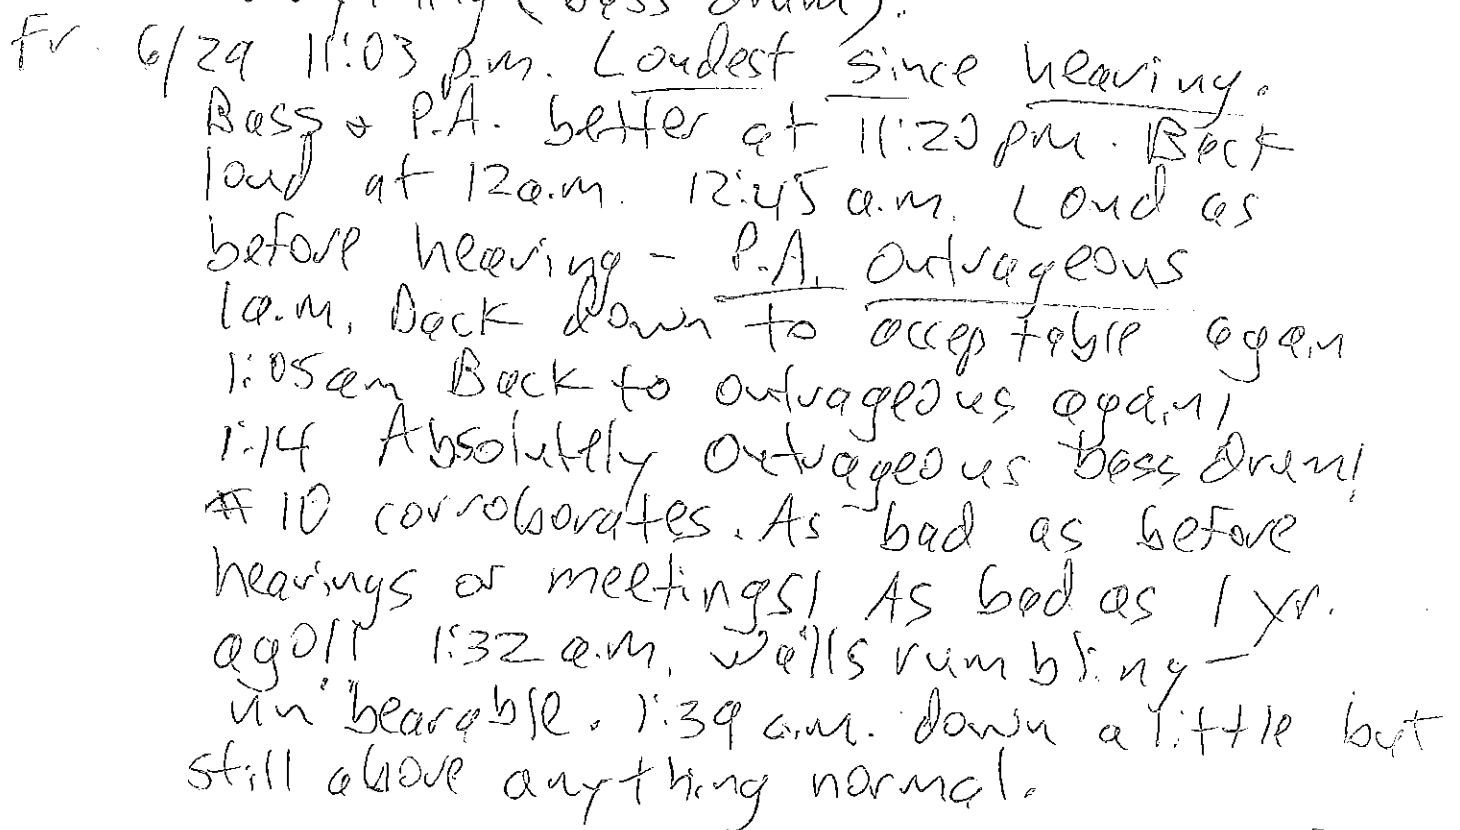 (bass drum).
Fr. 6/29 11:03 p.m. Loudest since hearing.
Bass & P.A. better at 11:20 pm. Back
loud at 12a.m. 12:45 a.m. Loud as
before hearing - P.A. outrageous
1a.m. Back down to acceptable again
1:05am Back to outrageous again!
1:14 Absolutely outrageous bass drum!
#10 corroborates. As bad as before
hearings or meetings! As bad as 1 yr.
ago!! 1:32 a.m. Walls rumbling -
unbearable. 1:39 a.m. down a little but
still above anything normal.